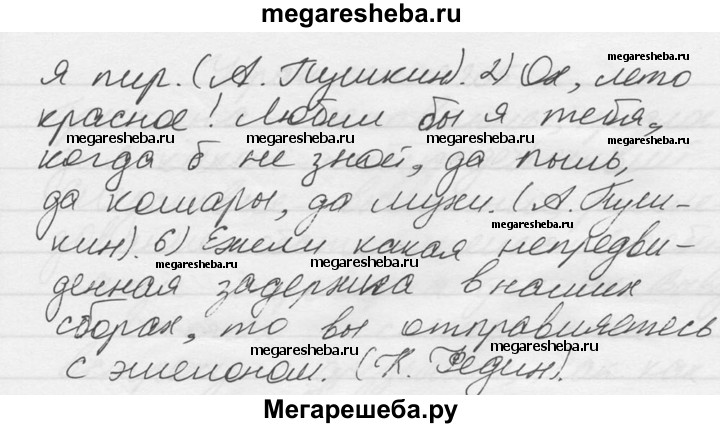 megaresheba.ru
я пир. (А. Пушкин). 2) Ох, лето
megaresheba.ru
красное! Любил бы я тебя,
megaresheba.ru megaresheba.ru megaresheba.ru
когда б не зной, да пыль,
да комары, да мухи. (А. Пуш-
megaresheba.ru megaresheba.ru
кин). 6) Ежели какая непредви-
megaresheba.ru megaresheba.ru megaresheba.ru
денная задержка в наших
сборах, то вы отправляетесь
megaresheba.ru megaresheba.ru
с эшелоном. (К. Федин).
megaresheba.ru
Мегарешеба.ру